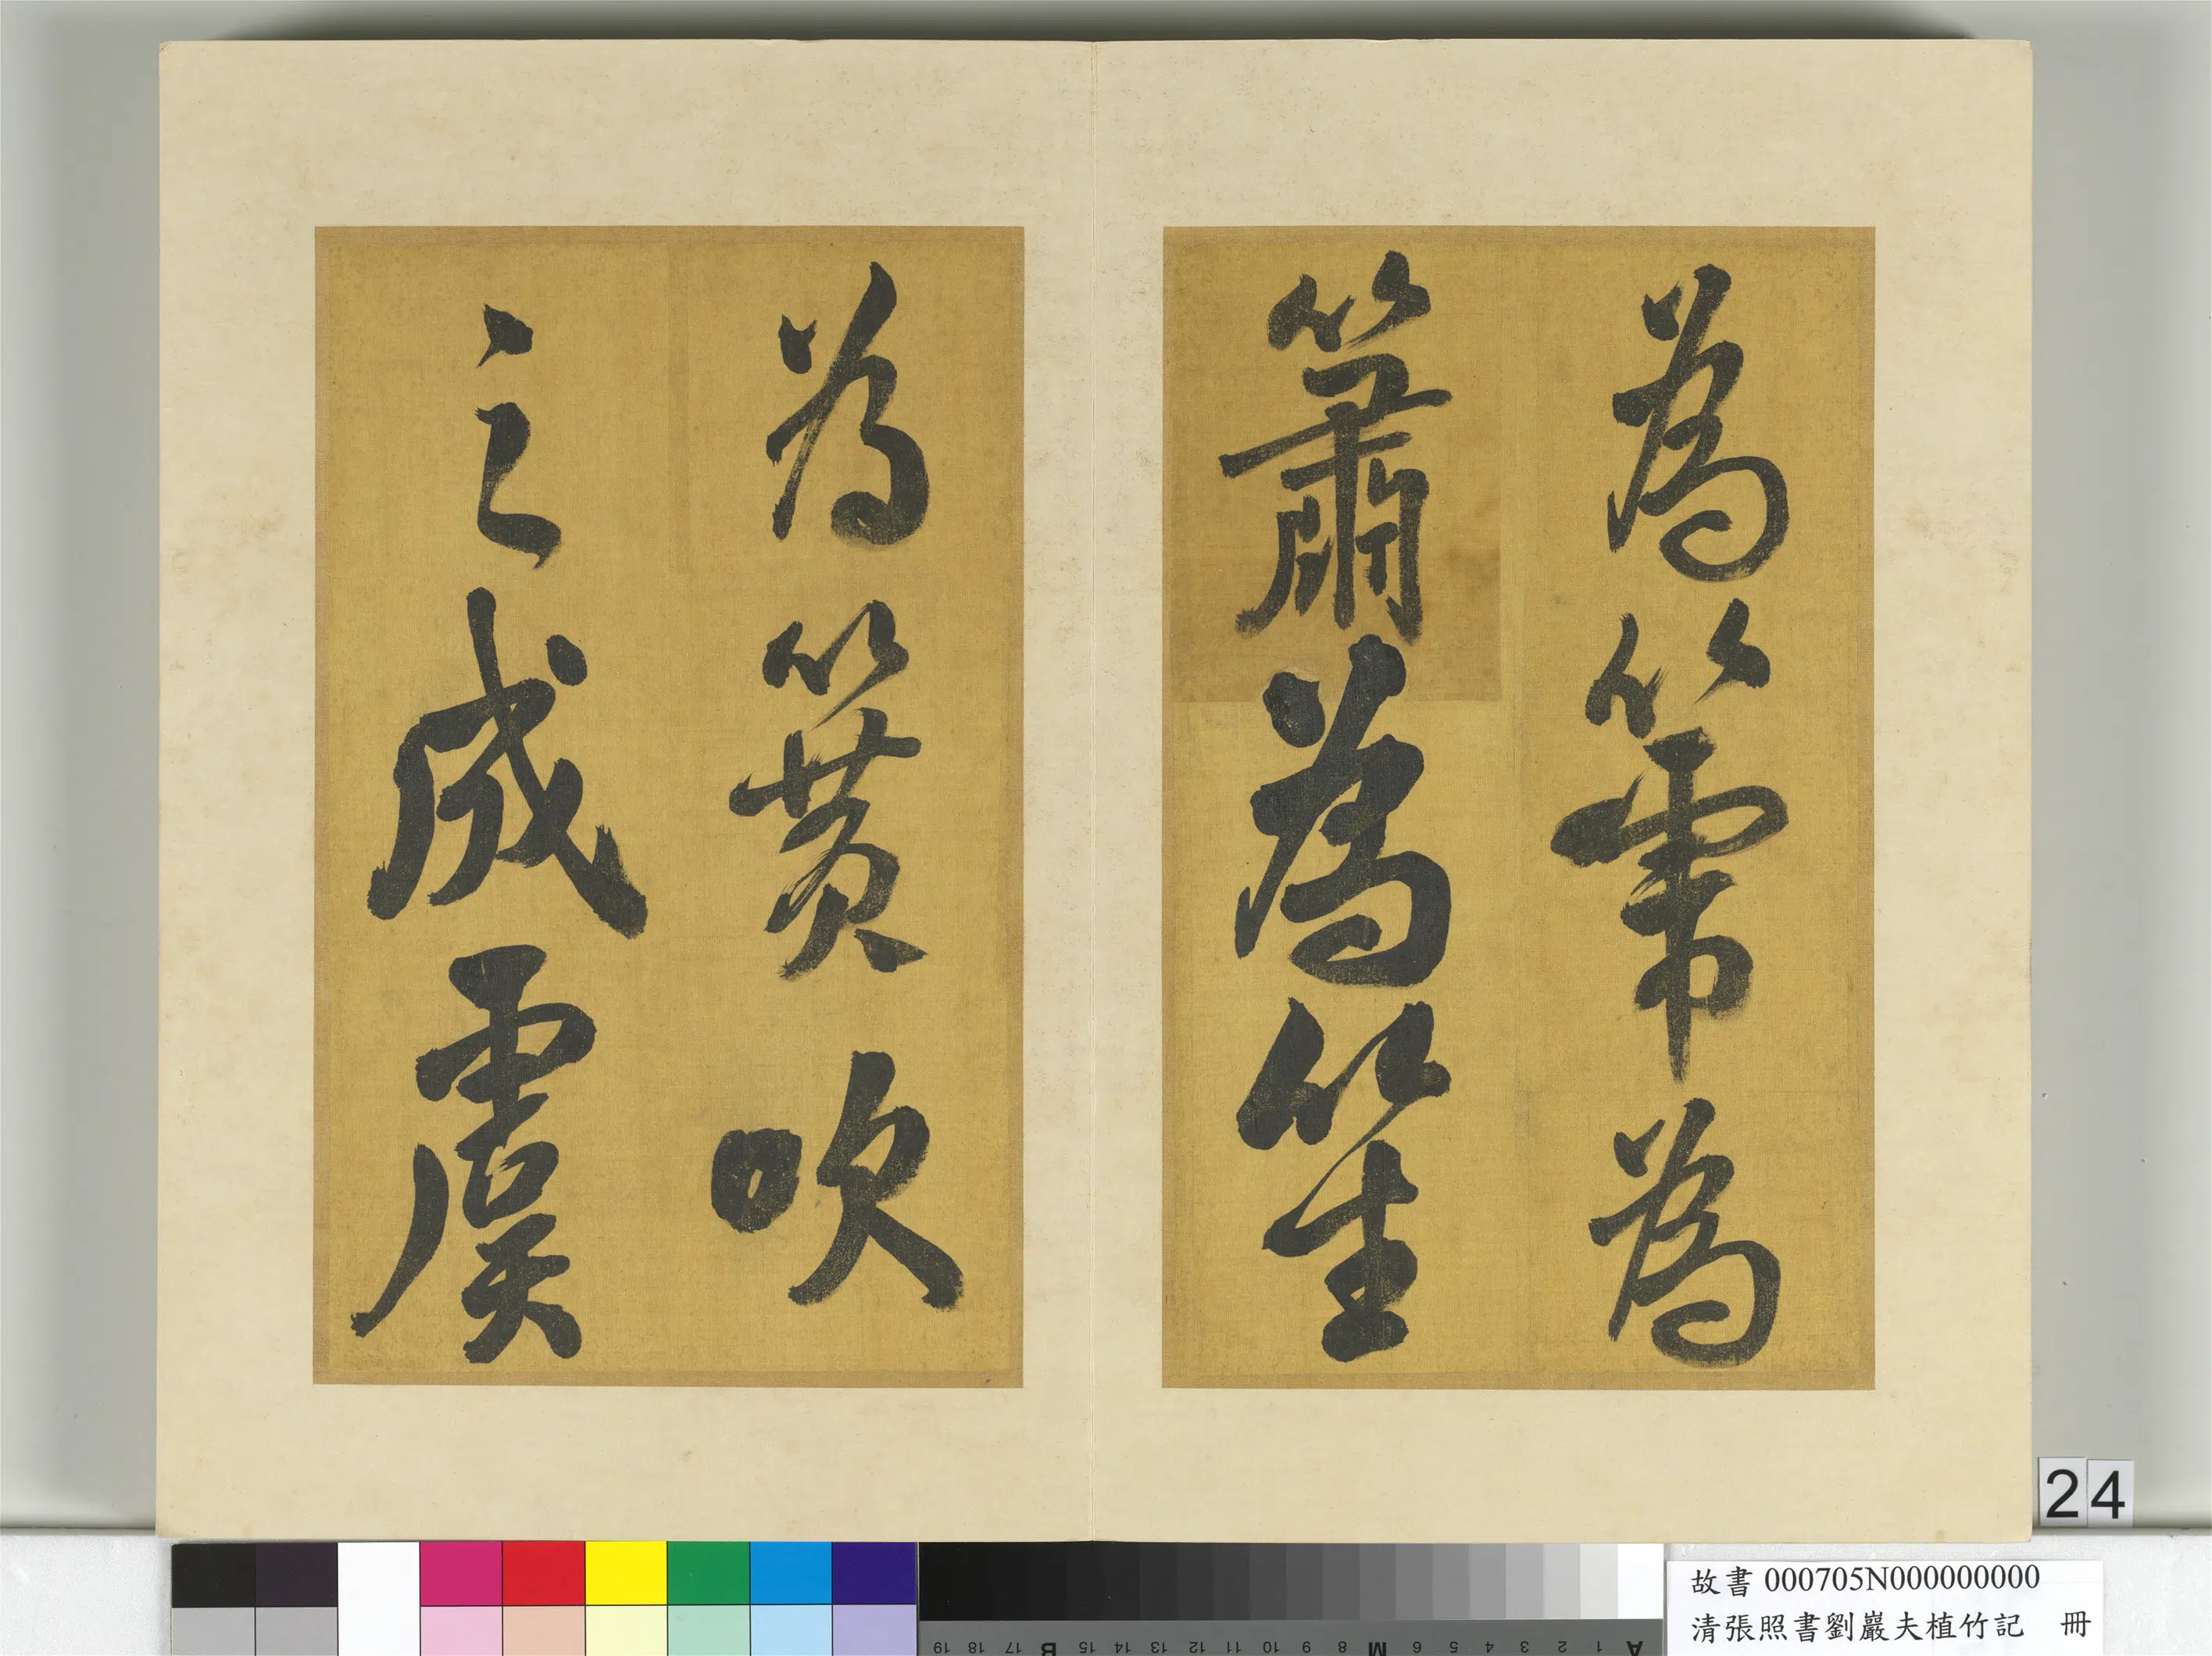 為箎為
簫為笙
為簧吹
之成虞
24
故書 000705N000000000
清張照書劉巖夫植竹記 冊
A 1 2 3 4 5 6 M 8 9 10 11 12 13 14 15 B 17 18 19